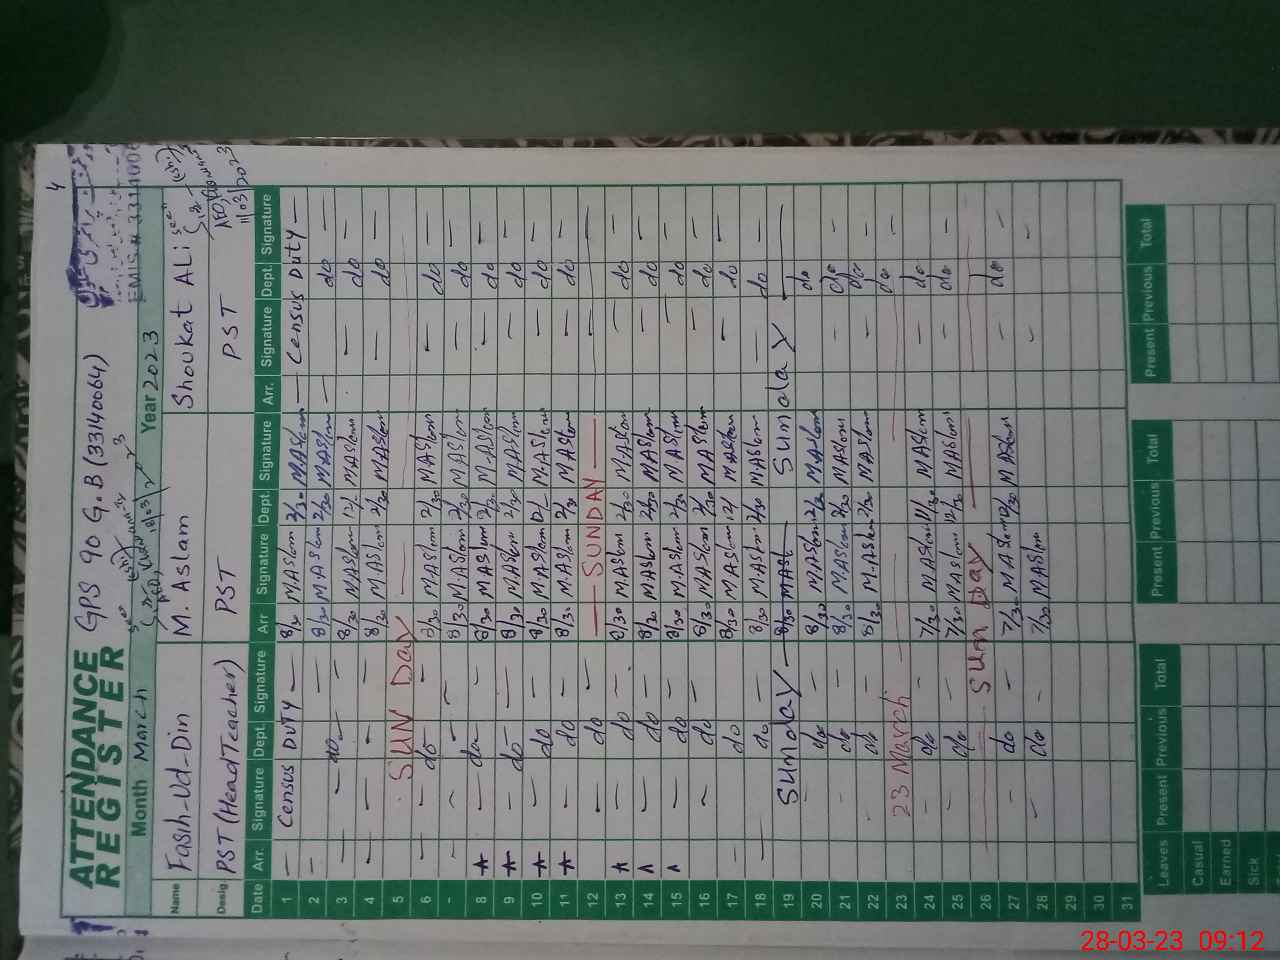 4
ATTENDANCE REGISTER
GPS 90 G.B (33140064)
EMIS # 33140064
Month March Year 2023
Name Fasih-Ud-Din M. Aslam Shoukat ALi
Desig. PST (Head Teacher) PST PST
11/03/2023
Date Arr. Signature Dept. Signature Arr Signature Dept. Signature Arr. Signature Dept. Signature
1 — Census DUTY — 8/30 M.ASlam 2/30 M.ASlam — Census Duty —
2 8/30 M.ASlam 2/30 M.ASlam do
3 do 8/30 M.ASlam 12/ M.ASlam do
4 8/30 M.ASlam 2/30 M.ASlam do
5 SUN Day
6 do 8/30 M.ASlam 2/30 M.ASlam do
8/30 M.ASlam 2/30 M.ASlam do
8 A do 8/30 M.ASlam 2/30 M.ASlam do
9 A do 8/30 M.ASlam 2/30 M.ASlam do
10 A do 8/30 M.ASlam M.ASlam do
11 A do 8/30 M.ASlam 2/30 M.ASlam do
12 do — SUNDAY —
13 A do 8/30 M.ASlam 2/30 M.ASlam do
14 do 8/30 M.ASlam 2/30 M.ASlam do
15 do 8/30 M.ASlam 2/30 M.ASlam do
16 do 8/30 M.ASlam 2/30 M.ASlam do
17 do 8/30 M.ASlam 12/ M.ASlam do
18 do 8/30 M.ASlam 2/30 M.ASlam do
19 Sunday 8/30 M.ASl Sunday
20 do 8/30 M.ASlam 2/30 M.ASlam do
21 do 8/30 M.ASlam 2/30 M.ASlam do
22 do 8/30 M.ASlam 2/30 M.ASlam do
23 23 March do
24 do 7/30 M.ASlam 11/30 M.ASlam do
25 do 7/30 M.ASlam 12/30 M.ASlam do
26 Sun Day
27 do 7/30 M.ASlam M.ASlam do
28 do 7/30 M.ASlam
29
30
31
Leaves Present Previous Total Present Previous Total Present Previous Total
Casual
Earned
Sick
28-03-23 09:12